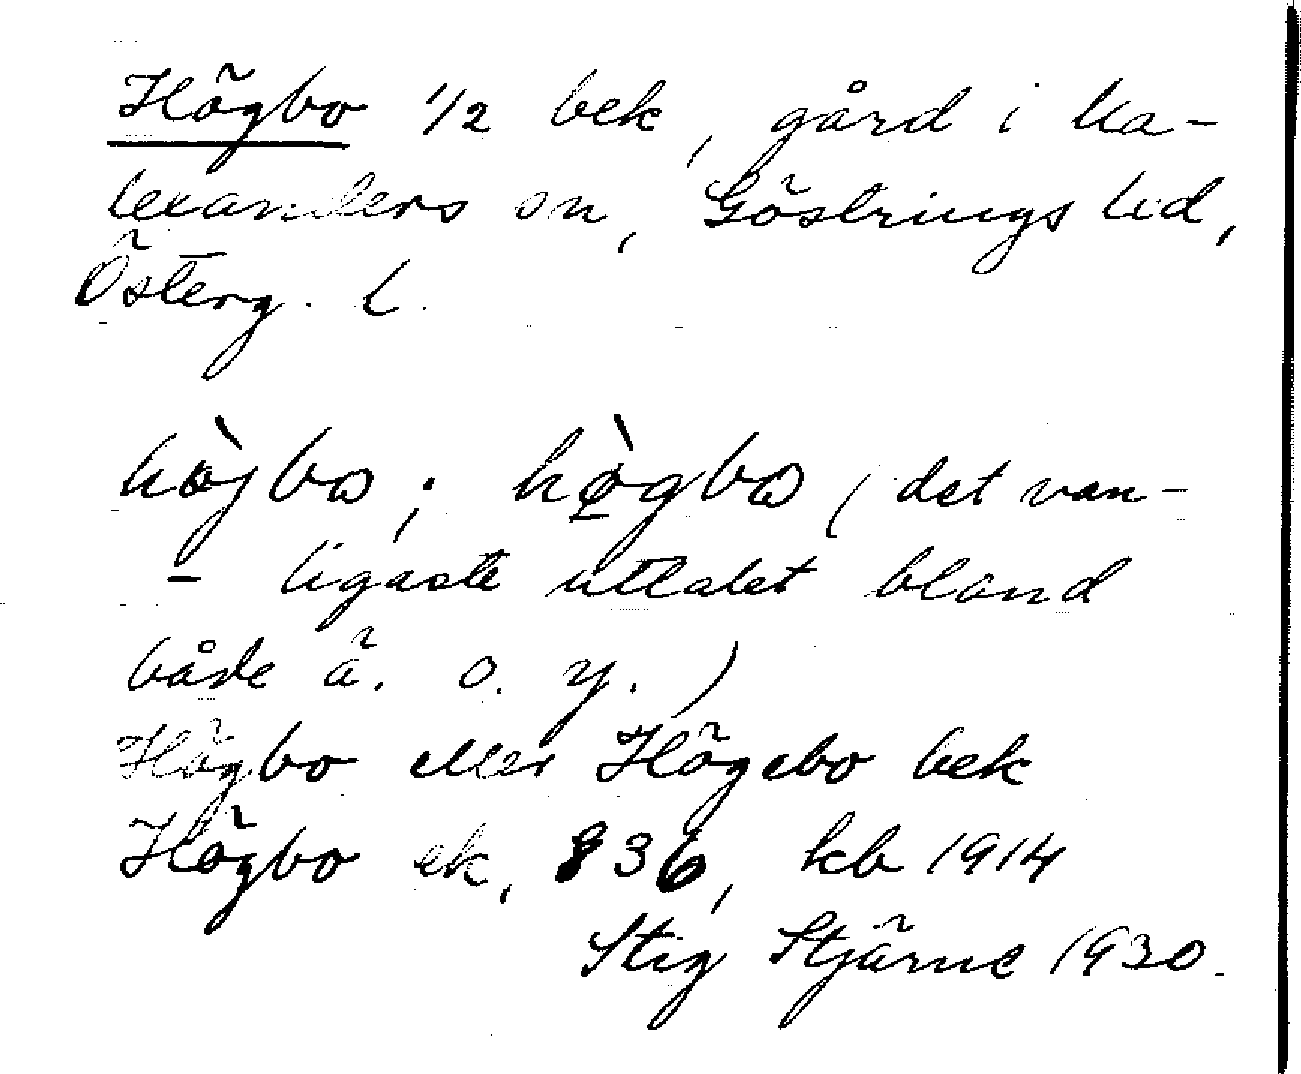 Högbo 1/2 bek, gård i Ka-
lexanders sn, Göstrings hd,
Österg. l.
hø̀jbω; hø̱̀gbω (det van-
- ligaste uttalet bland
både ä. o. y.)
Högbo eller Högebo bek
Högbo ek, 836, kb 1914
Stig Stjärne 1930.